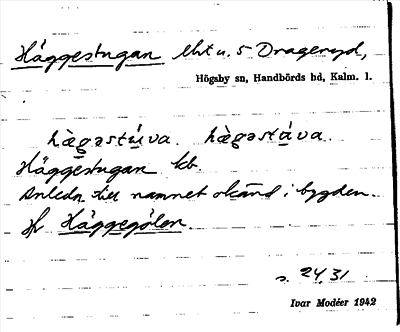 Häggestugan lht u. 5 Drageryd,
Högsby sn, Handbörds hd, Kalm. l.
hàgəstúva. hàgəstáva.
Häggestugan kb.
Anledn till namnet okänd i bygden.
jfr Häggegölen.
s. 24, 31
Ivar Modéer 1942